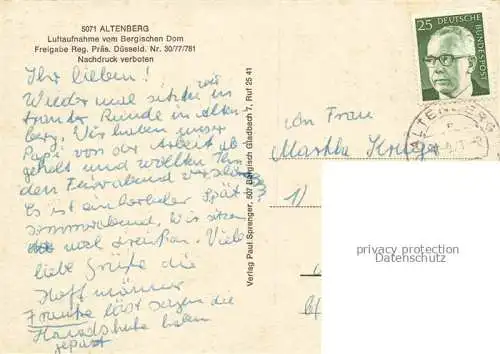 5071 ALTENBERG
Luftaufnahme vom Bergischen Dom
Freigabe Reg. Präs. Düsseld. Nr. 30/77/781
Nachdruck verboten
Ihr lieben!
Wieder mal sitzen wir in
trauter Runde in Alten-
berg. Wir haben unser
Papi von der Arbeit ab-
geholt und wollten Ihm
den Feierabend
Es ist ein herrlicher Spät-
sommerabend. Wir sitzen
noch draußen. Viele
liebe Grüße die
Hoffmänner
Frauke läßt sagen die
Handschuhe haben
gepaßt
Verlag Paul Sprenger, 507 Bergisch Gladbach 7, Ruf 25 41
25 DEUTSCHE BUNDESPOST
ALTENBERG
Frau
privacy protection
Datenschutz